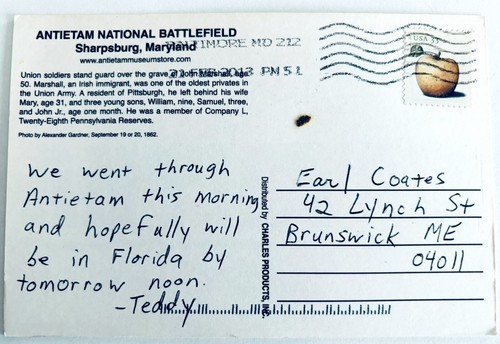 ANTIETAM NATIONAL BATTLEFIELD
Sharpsburg, Maryland
www.antietammuseumstore.com
Union soldiers stand guard over the grave of John Marshall, age
50. Marshall, an Irish immigrant, was one of the oldest privates in
the Union Army. A resident of Pittsburgh, he left behind his wife
Mary, age 31, and three young sons, William, nine, Samuel, three,
and John Jr., age one month. He was a member of Company L,
Twenty-Eighth Pennsylvania Reserves.
Photo by Alexander Gardner, September 19 or 20, 1862.
BALTIMORE MD 212
FEB 2013 PM 5 L
USA
We went through
Antietam this morning
and hopefully will
be in Florida by
tomorrow noon.
-Teddy
Distributed by CHARLES PRODUCTS, INC.
Earl Coates
42 Lynch St
Brunswick ME
04011